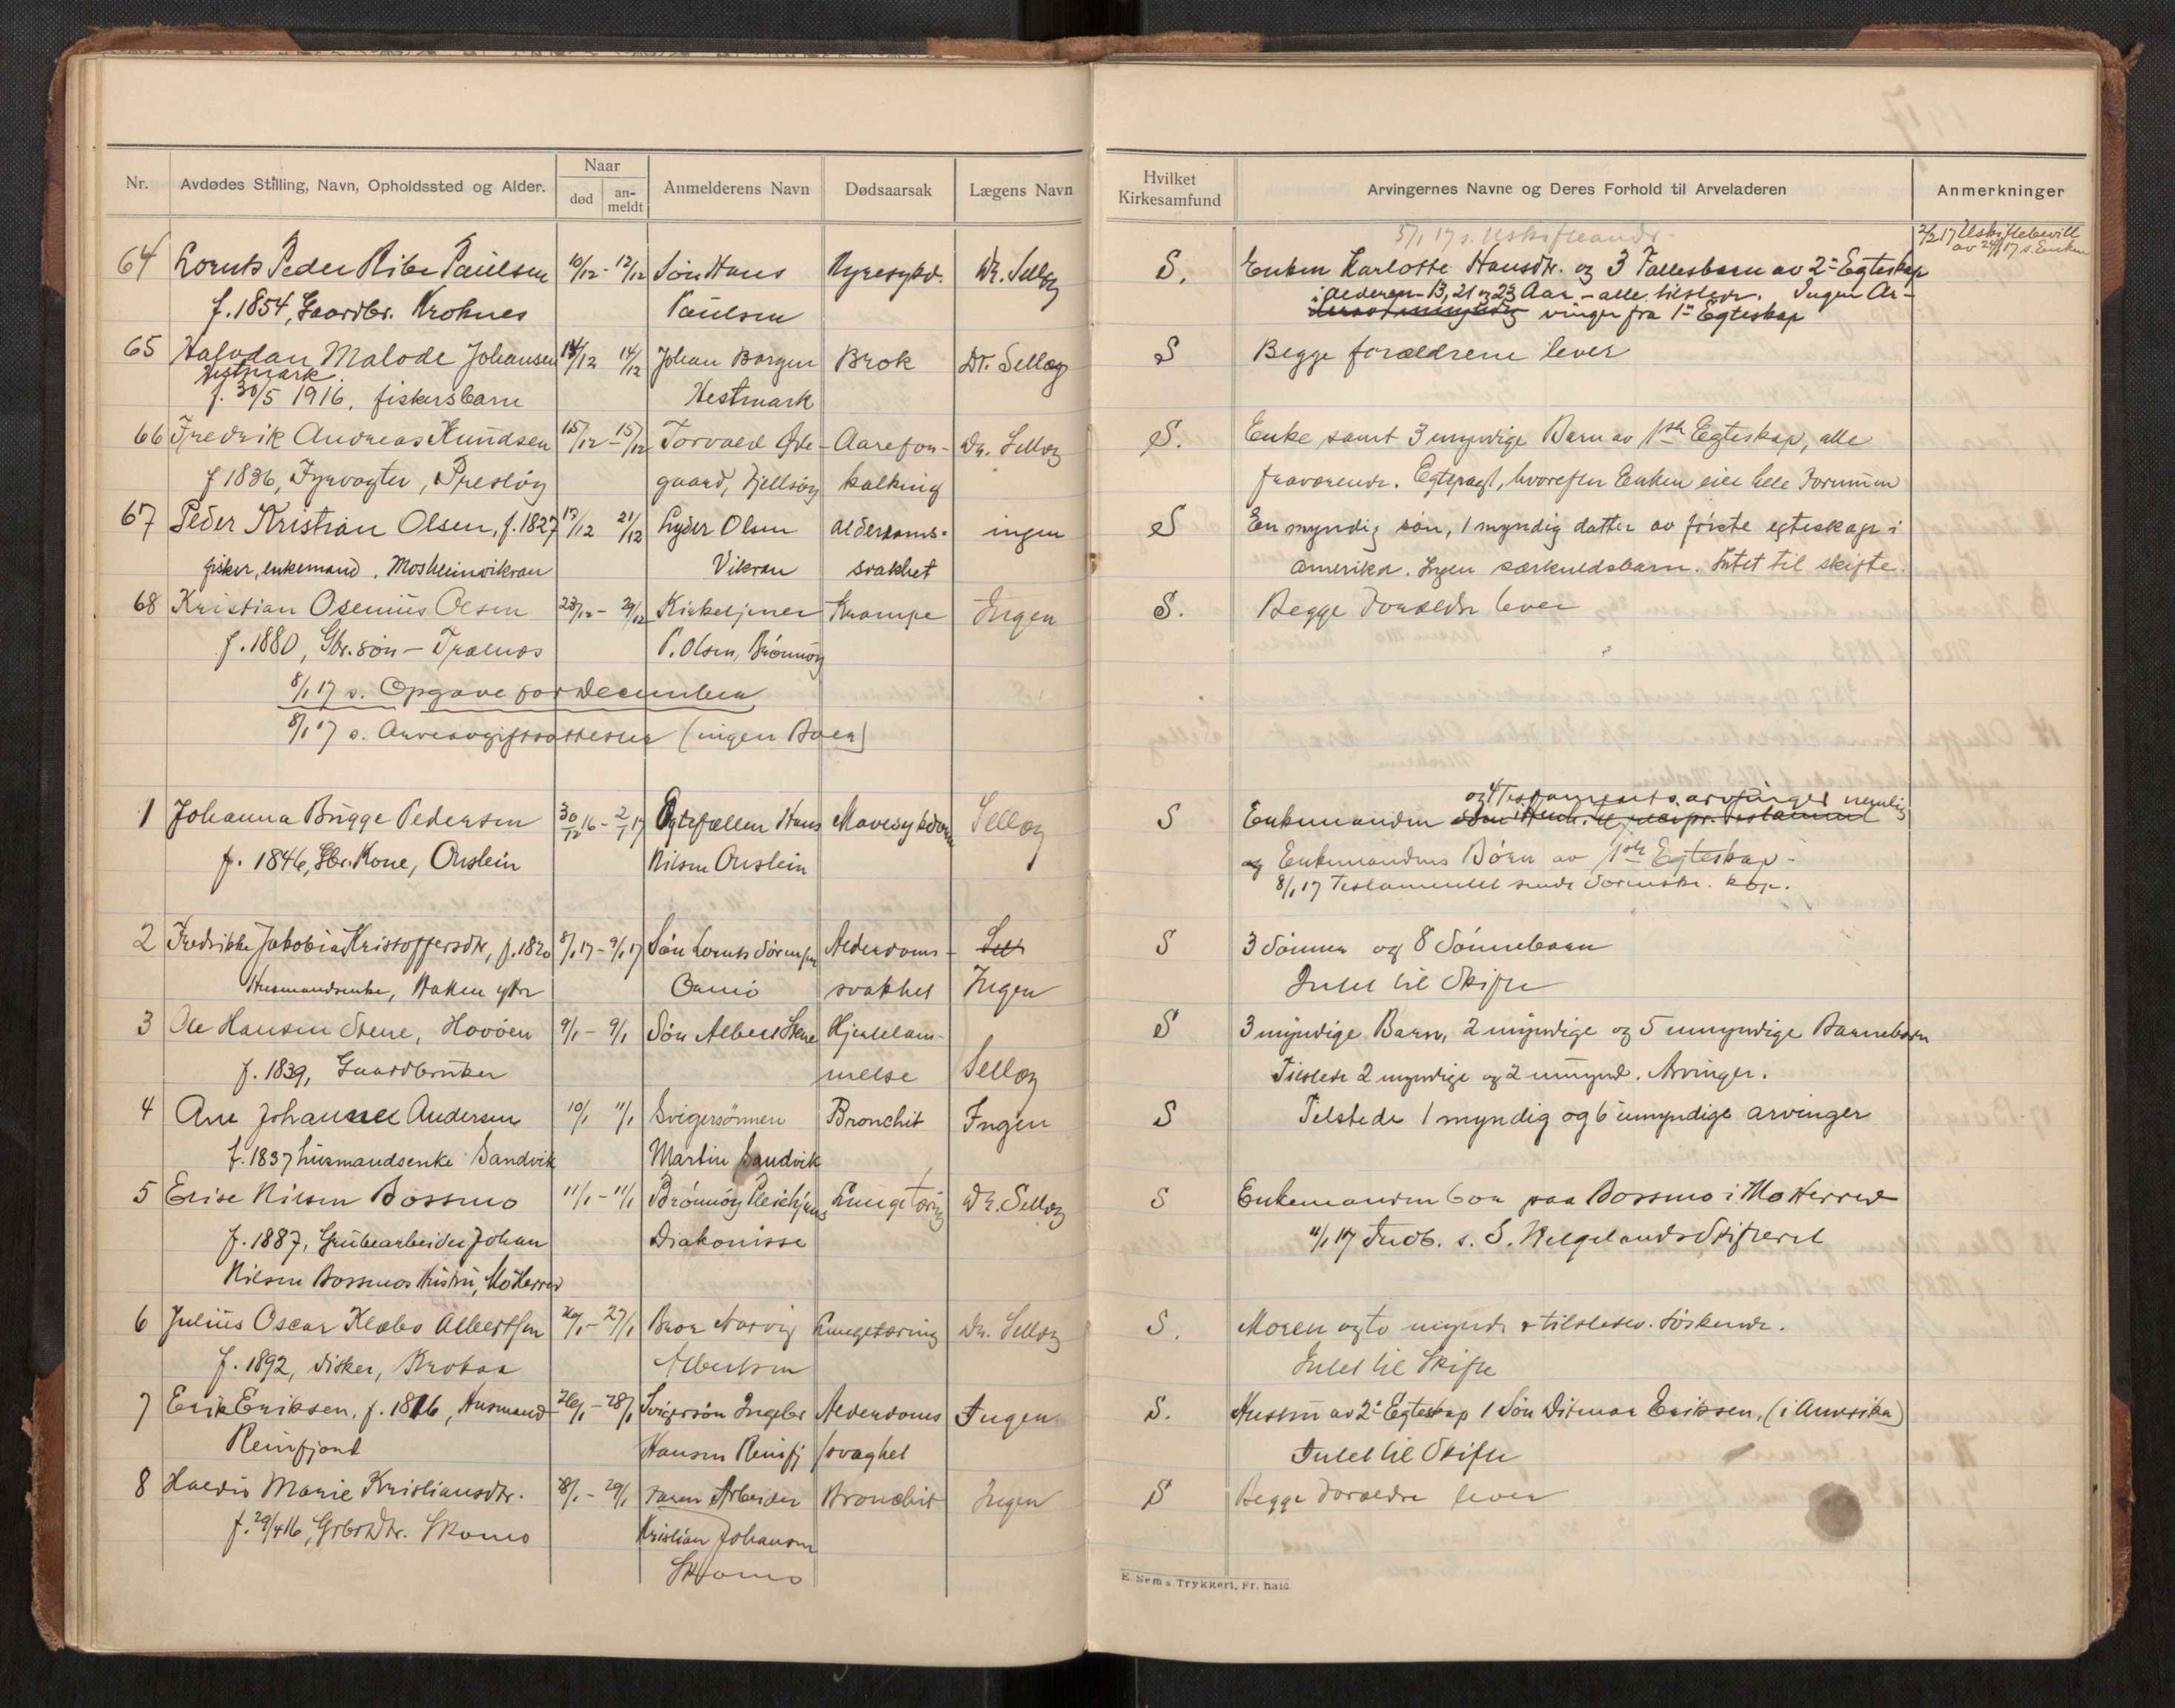 1917
Nr. Avdødes Stilling, Navn, Opholdssted og Alder. Naar død an-meldt Anmelderens Navn Dødsaarsak Lægens Navn
Hvilket Kirkesamfund Arvingernes Navne og Deres Forhold til Arveladeren Anmerkninger
5/1 17 s. Uskifteandr.
2/2 17 Uskiftebevill
av 24/1 17 s. Enken
64 Lornts Peder Ribe Paulsen 10/12 - 12/12 Søn Hans Nyresykd. Dr. Selløg S. Enken Karlotte Hansdtr. og 3 Fællesbarn av 2det Egteskap
f. 1854, Gaardbr. Kroknes Paulsen i alderen 13, 21 og 23 Aar - alle tilstede. Ingen Ar-
vinger fra 1ste Egteskap
65 Halvdan Malode Johansen 14/12 14/12 Johan Borgen Brok Dr. Selløg S Begge forældrene lever
Hestmark
f. 30/5 1916, fiskersbarn Hestmark
66 Fredrik Andreas Knudsen 15/12 - 15/12 Torvald Øde- Aarefor- Dr. Selløg S. Enke samt 3 myndige Barn av 1ste Egteskap, alle
f 1836, Fyrvogter, Prestøy gaard, Tjellsøy kalkning fraværende. Egtepagt, hvorefter Enken eier hele Formuen
67 Peder Kristian Olsen, f. 1827 17/12 21/12 Lyder Olsen alderdoms- ingen S En myndig søn, 1 myndig datter av første egteskap i
fisker, enkemand, Mosheimvikran Vikran svakhet Amerika. Ingen særkuldsbarn. Intet til skifte.
68 Kristian Osenius Olsen 23/12 - 29/12 Kirketjener Krampe Ingen S. Begge Forældre lever
f. 1880, Gbr. søn - Trælnes P. Olsen, Brønnøy
8/1 17 s. Opgave for December
8/1 17 s. Arveavgiftsattester (ingen Boer)
og 4 Testamentsarvinger nemlig
1 Johanna Brügge Pedersen 30/12 16 - 2/1 17 Egtefællen Hans Mavesykdom Selløg S Enkemanden
f. 1846, Gbr. Kone, Onslein Nilsen Onslein og Enkemandens Børn av 1ste Egteskap -
8/1 17 Testamentet sendt Sorenskr. kop.
2 Fredrikke Jakobia Kristoffersdtr, f. 1820 8/1 17 - 9/1 17 Søn Lornts Sørensen Alderdoms- Sell S 3 Sønner og 8 Sønnebarn
Husmandsenke, Hatten ytre svakhet Ingen Intet til Skifte
3 Ole Hansen Stene, Hovøen 9/1 - 9/1 Søn Albert Stene Hjertelam- S 3 myndige Barn, 2 myndige og 5 umyndige Barnebarn
f. 1839, Gaardbruker melse Selløg Tilstede 2 myndige og 2 umynd. Arvinger.
4 Ane Johanne Andersen 10/1 11/1 Svigersønnen Bronchit Ingen S Tilstede 1 myndig og 6 umyndige arvinger
f. 1837 husmandsenke Sandvik Martin Sandvik
5 Elise Nilsen Bossmo 11/1 - 11/1 Brønnøy Pleiehjems Lungetæring Dr. Selløg S Enkemanden bor paa Bossmo i Mo Herred
f. 1887, Grubearbeider Johan Diakonisse 11/1 17 Indb. s. S. Helgelands Skifteret
Nilsen Bossmos Hustru, Mo Herred
6 Julius Oscar Klæbo Albertsen 26/1 - 27/1 Bror Narvig Lungetæring Dr. Selløg S. Moren og to mynd. tilstedev. Søskende.
f. 1892, Fisker, Krokaa Albertsen Intet til Skifte
7 Erik Eriksen, f. 1816, Husmand 26/1 - 28/1 Svigersøn Ingebr Alderdoms Ingen S. Hustru av 2det Egteskap 1 Søn Ditmar Eriksen, (i Amerika)
Reinfjord Hansen Reinfj svaghet Intet til Skifte
8 Haldis Marie Kristiansdtr. 28/1 - 29/1 Faren Arbeider Bronchit Ingen S Begge Forældre lever
f. 29/4 16, Grbrdtr. Skomo Kristian Johansen
Skomo
E. Sem's Trykkeri, Fr. hald